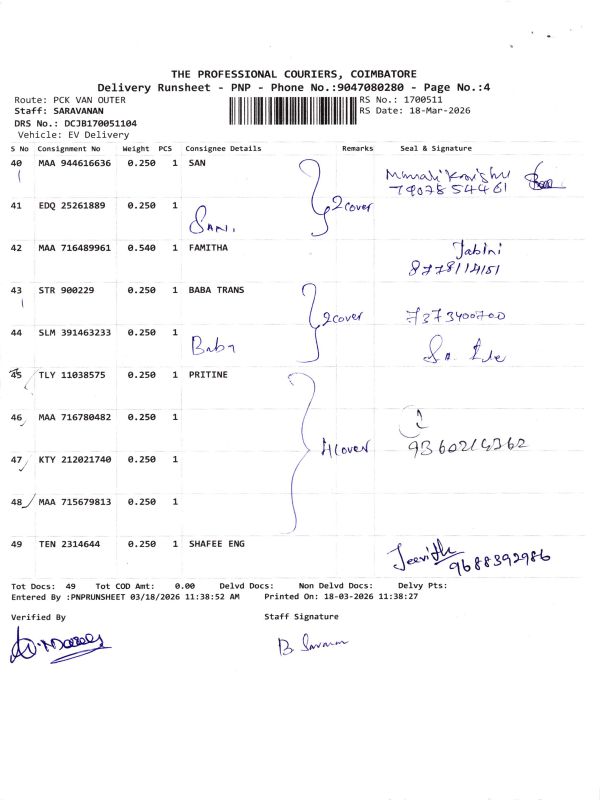 THE PROFESSIONAL COURIERS, COIMBATORE
Delivery Runsheet - PNP - Phone No.:9047080280 - Page No.:4
Route: PCK VAN OUTER
Staff: SARAVANAN
DRS No.: DCJB170051104
Vehicle: EV Delivery
RS No.: 1700511
RS Date: 18-Mar-2026
S No Consignment No Weight PCS Consignee Details Remarks Seal & Signature
40 MAA 944616636 0.250 1 SAN
79078 54461
41 EDQ 25261889 0.250 1 SAN. 2 cover
42 MAA 716489961 0.540 1 FAMITHA Jabini
8778114151
43 STR 900229 0.250 1 BABA TRANS
2 cover 7373400700
44 SLM 391463233 0.250 1 Baba
45 TLY 11038575 0.250 1 PRITINE
46 MAA 716780482 0.250 1
4 cover 9360214362
47 KTY 212021740 0.250 1
48 MAA 715679813 0.250 1
49 TEN 2314644 0.250 1 SHAFEE ENG Jeevith
9688392986
Tot Docs: 49 Tot COD Amt: 0.00 Delvd Docs: Non Delvd Docs: Delvy Pts:
Entered By :PNPRUNSHEET 03/18/2026 11:38:52 AM Printed On: 18-03-2026 11:38:27
Verified By Staff Signature
B Saravanan